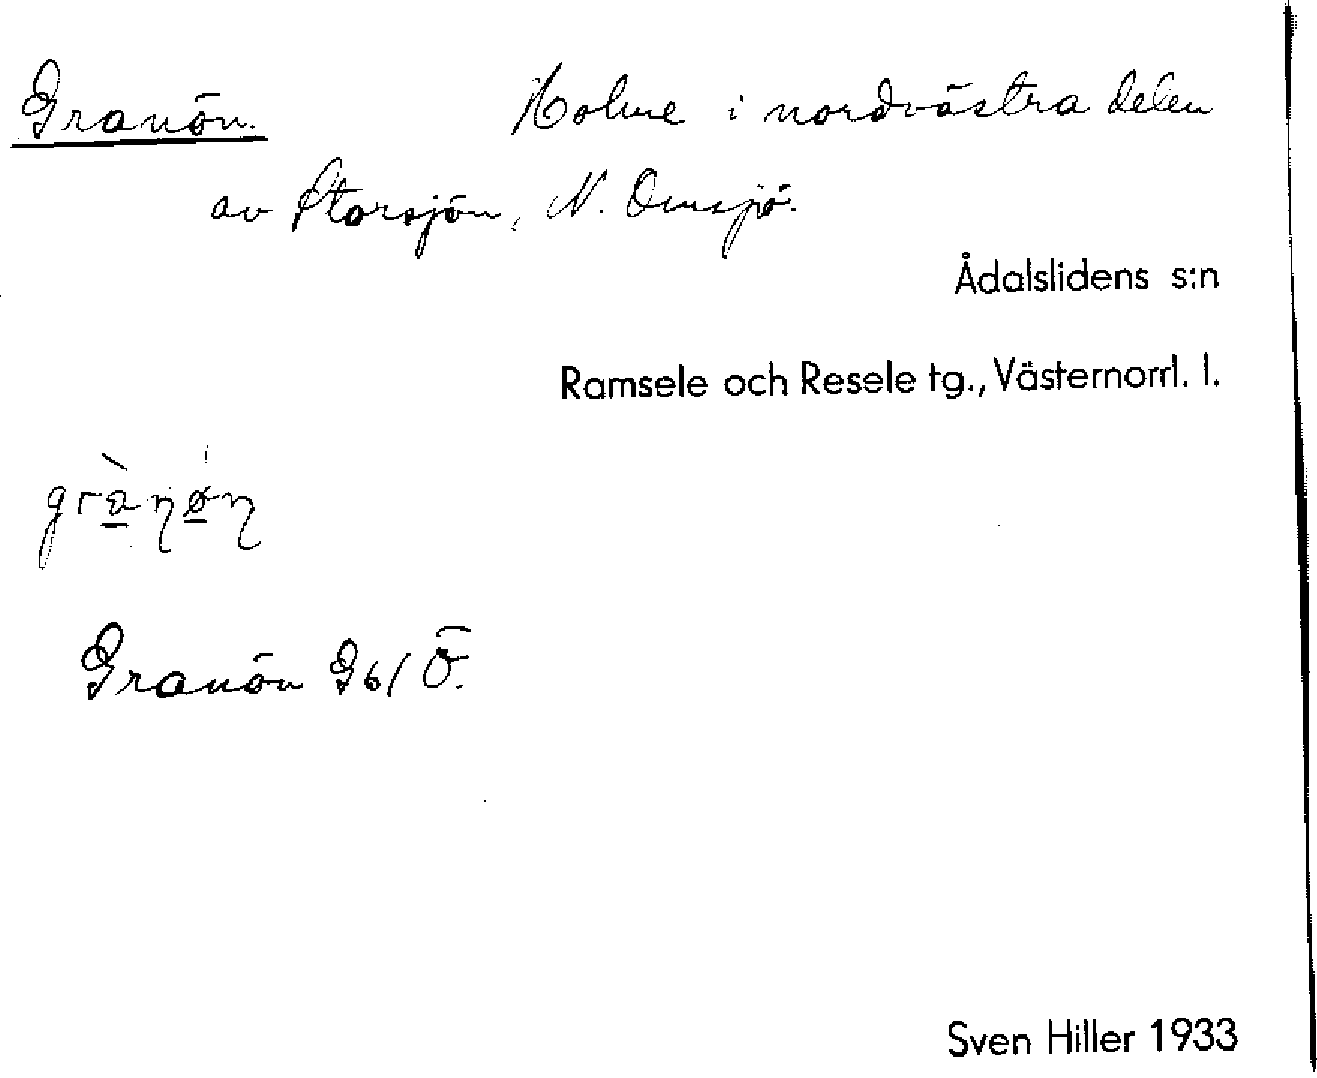 Granön. Holme i nordvästra delen
av Storsjön, N. Omsjö.
Ådalslidens s:n
Ramsele och Resele tg., Västernorrl. l.
Granön Gb/Ö.
Sven Hiller 1933